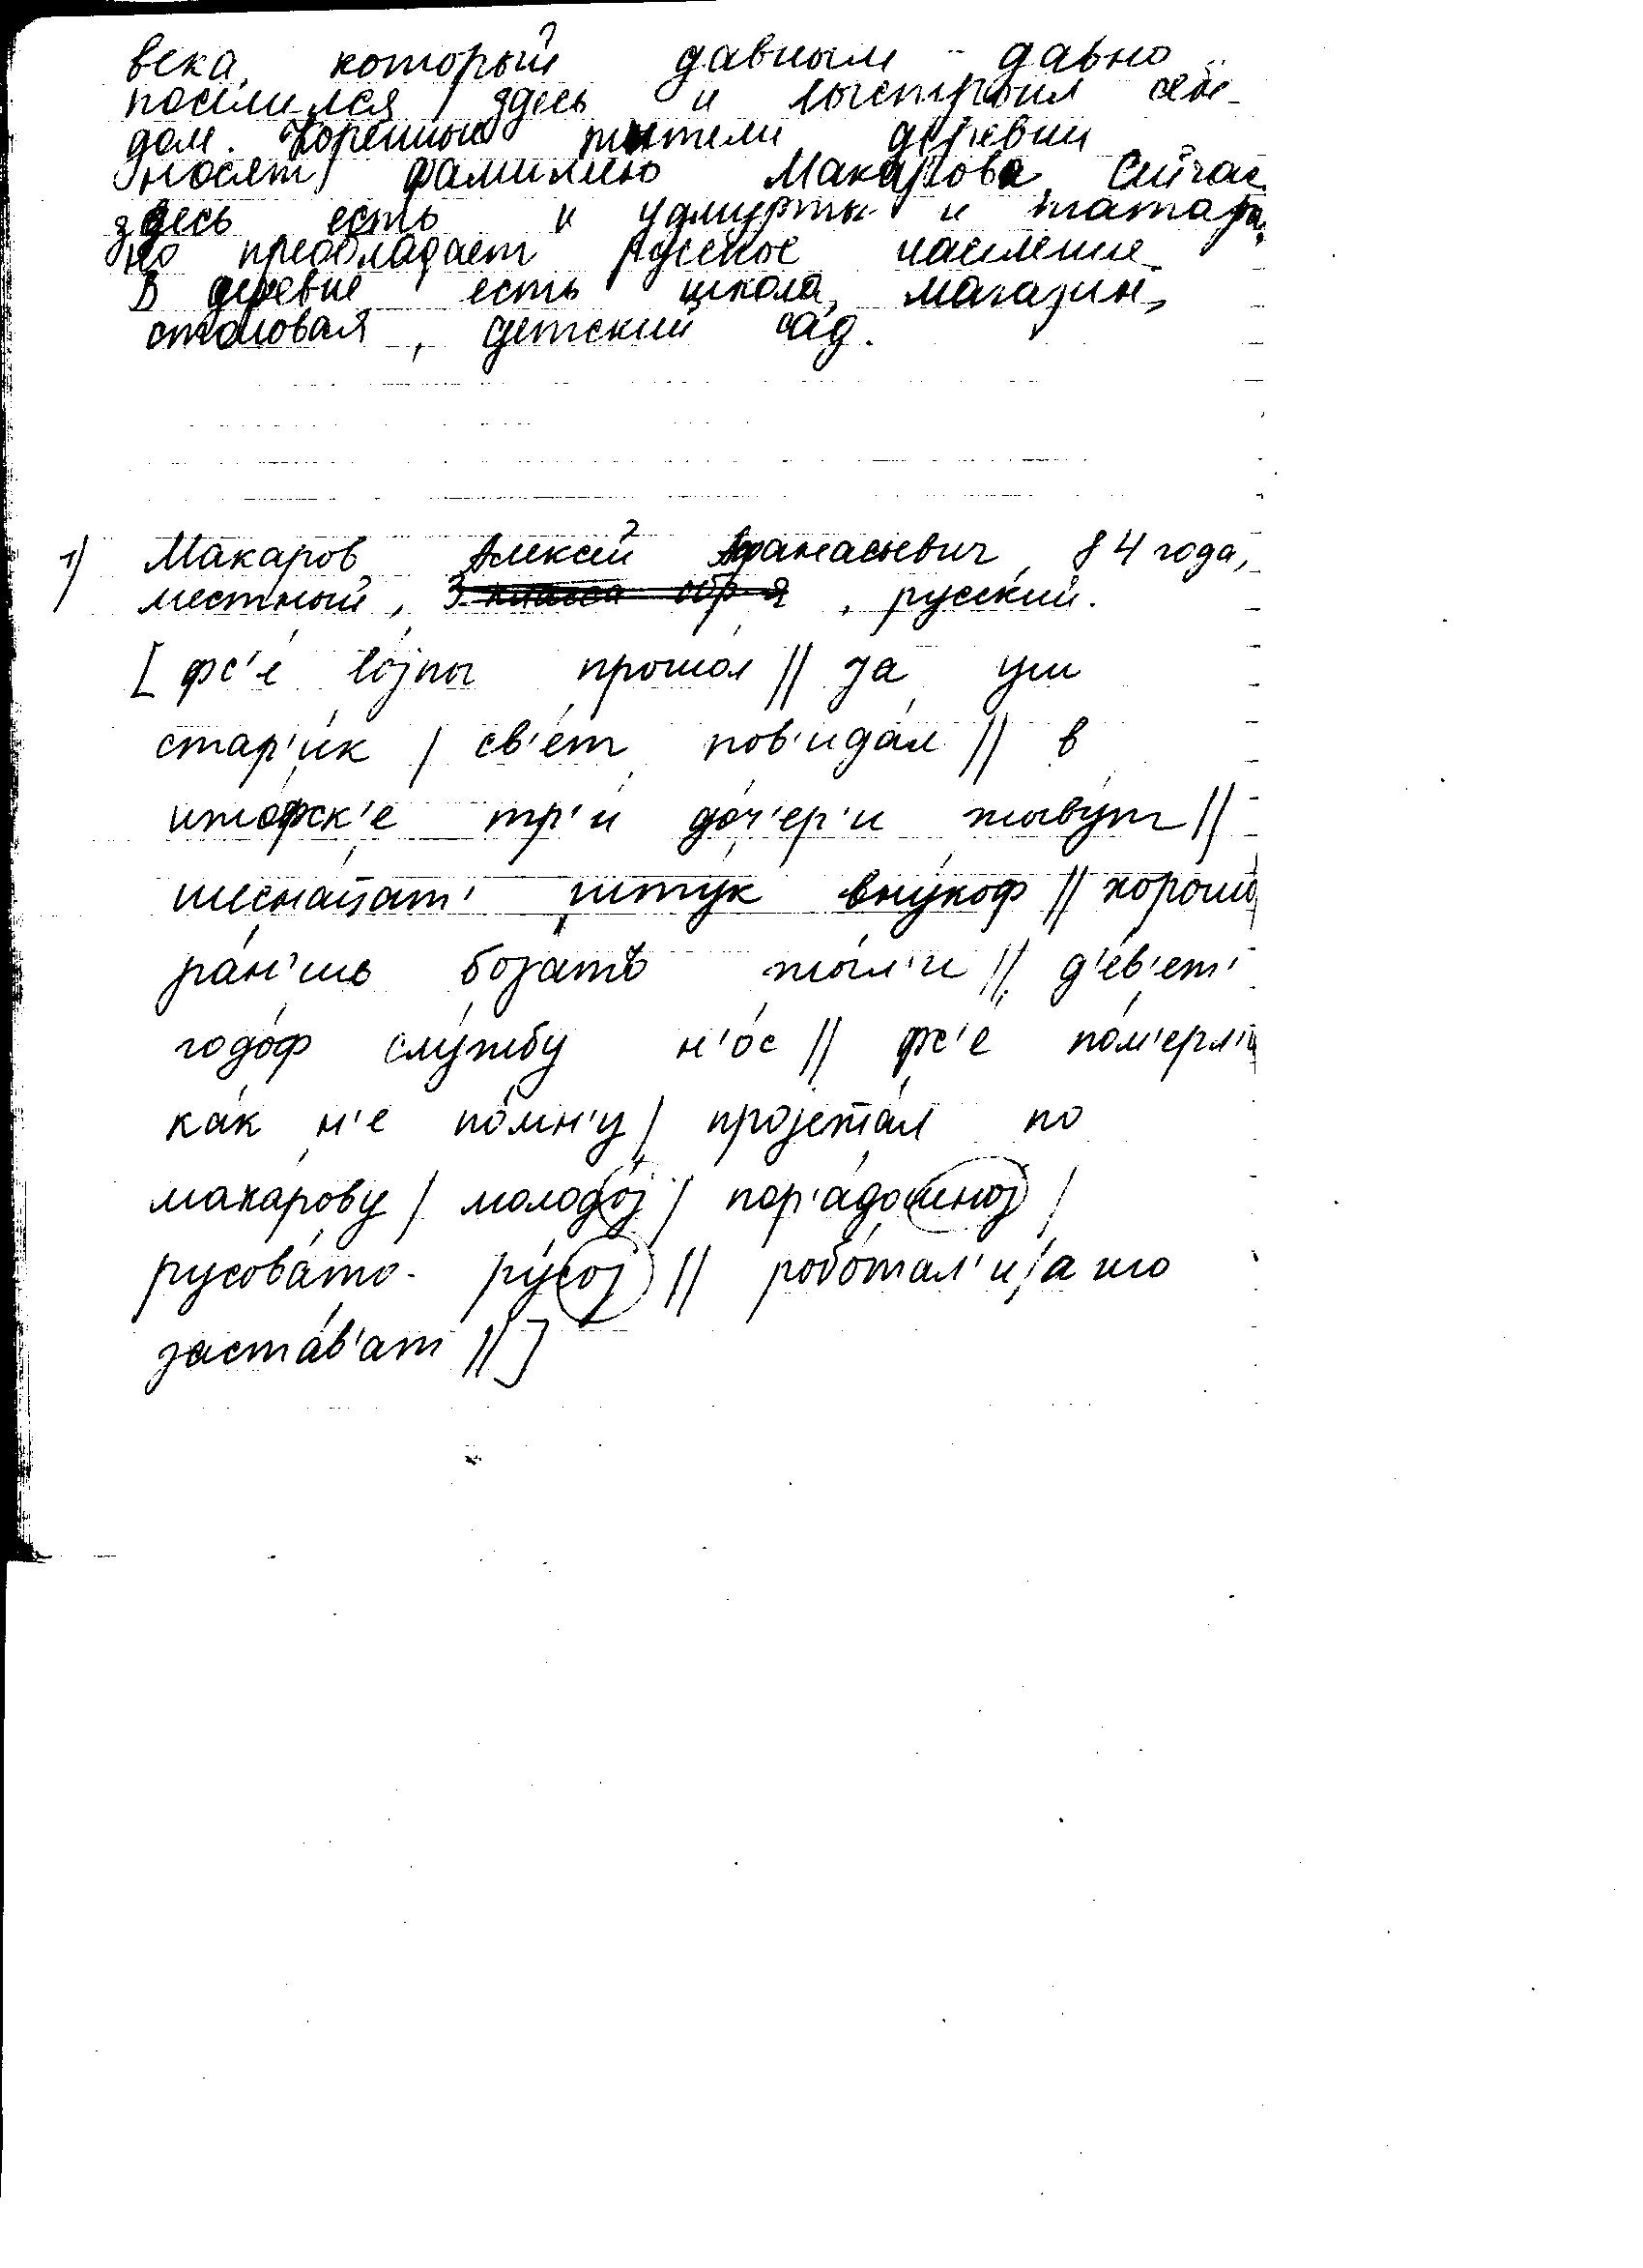 века, который давным - давно
поселился здесь и выстроил себе
дом. Коренные жители деревни
носят фамилию Макаровы. Сейчас
здесь есть и удмурты и татары,
но преобладает русское население.
В деревне есть школа, магазин,
столовая, детский сад.
1) Макаров Алексей Афанасьевич, 84 года,
местный, 3 класса обр-я, русский.
[ фс'е́ во́јны прошо́л || ја уш
стар'и́к / св'е́т пов'ида́л || в
ижо́фск'е тр'и́ до́ч'ер'и жыву́т ||
шесна́ц̄ат' шту́к вну́коф || хорошо́
ра́н'шь бога́тъ жы́л'и || д'е́в'ет'
годо́ф слу́жбу н'о́с || фс'е́ по́м'ерл'и
ка́к н'е по́мн'у / пројежа́л по
мака́рову / молодо́ј / пор'а́дошној /
русова́то - ру́сој || робо́тал'и / а што
заста́в'ат || ]